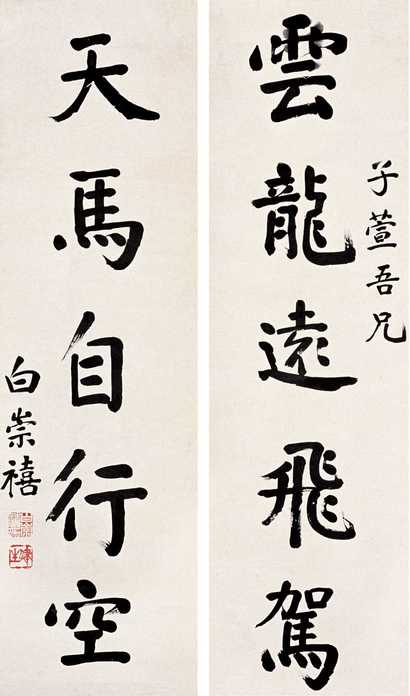 子萱吾兄
雲龍遠飛駕
天馬自行空
白崇禧